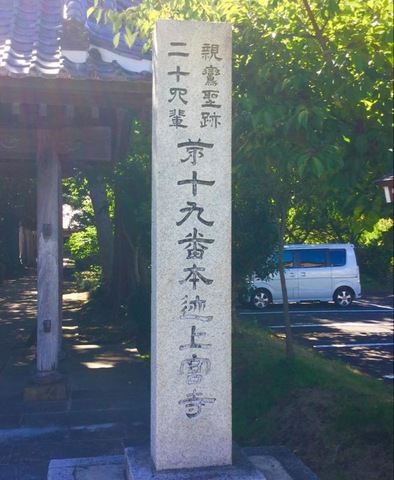 親鸞聖跡
二十四輩
第十九番本迹上宮寺